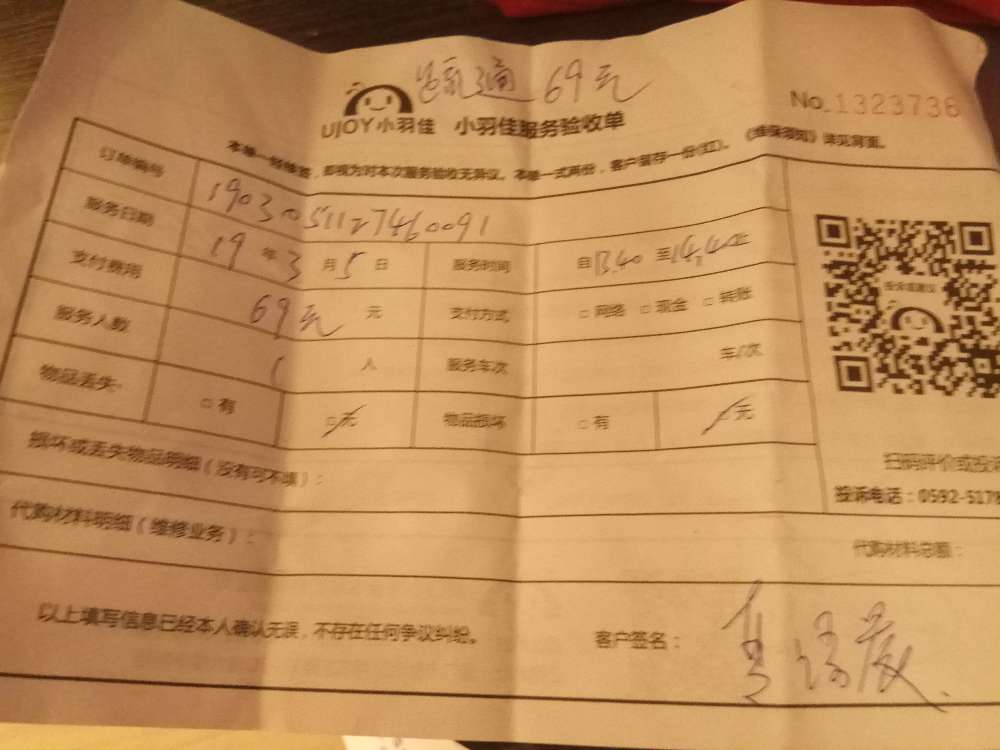 69元
No.1323736
UJOY小羽佳 小羽佳服务验收单
本单一经签署，即视为对本次服务验收无异议。本单一式两份，客户留存一份(红)。《维保须知》详见背面。
订单编号 1903051127460091
服务日期 19年3月5日 服务时间 自13.40至14.40止
支付费用 69元 元 支付方式 □网络 □现金 □转账
服务人数 1 人 服务车次 车/次
物品丢失 □有 □无 物品损坏 □有 □无
投诉或建议
损坏或丢失物品明细（没有可不填）：
扫码评价或投诉
投诉电话：0592-5178
代购材料明细（维修业务）：
代购材料总额：
以上填写信息已经本人确认无误，不存在任何争议纠纷。
客户签名：